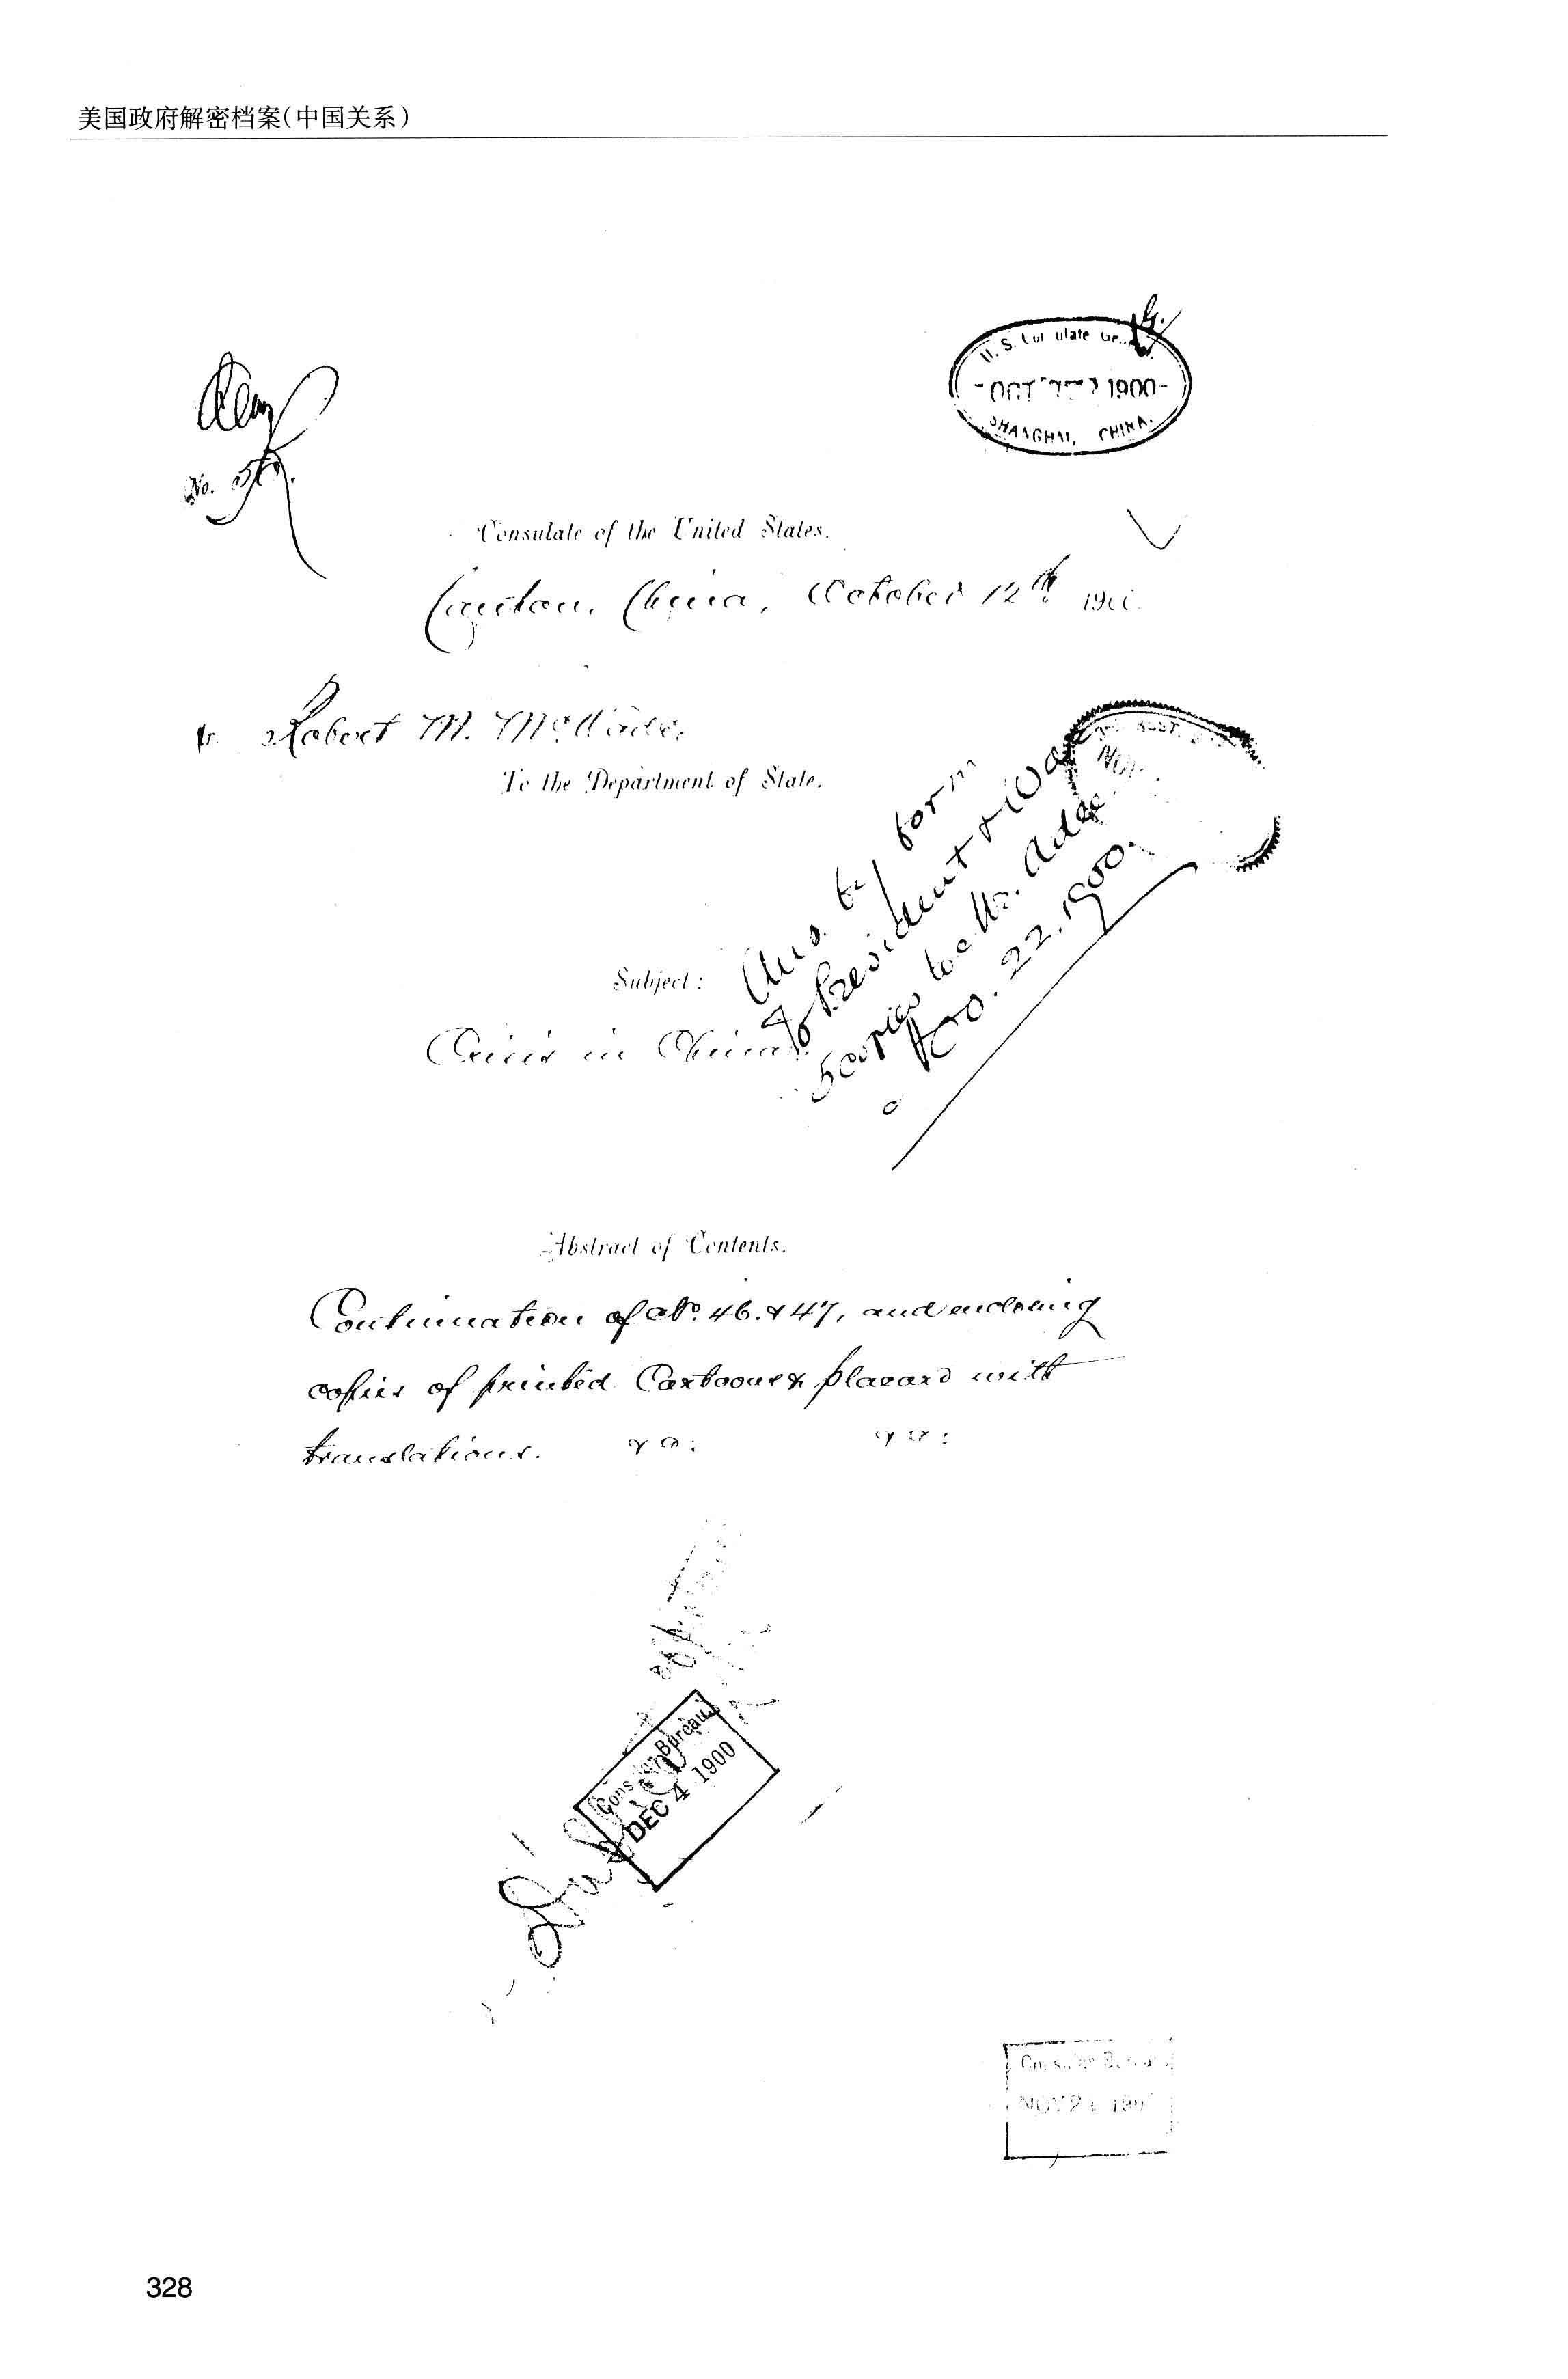 美国政府解密档案(中国关系)
U. S. Consulate General.
OCT 1900
SHANGHAI, CHINA.
No.
Consulate of the United States.
Canton, China, October 12th 1900.
Mr. Robert M. McWade,
To the Department of State.
Ans. by form
to President & War
5 copies to Mr. Adee
22, 1900.
NOV
Subject:
Crisis in China.
Abstract of Contents.
Continuation of No. 46. & 47, and enclosing
copies of printed Cartoons & placard with
translations.
Consular Bureau
DEC 4 1900
Consular Bureau
NOV 2 190
328